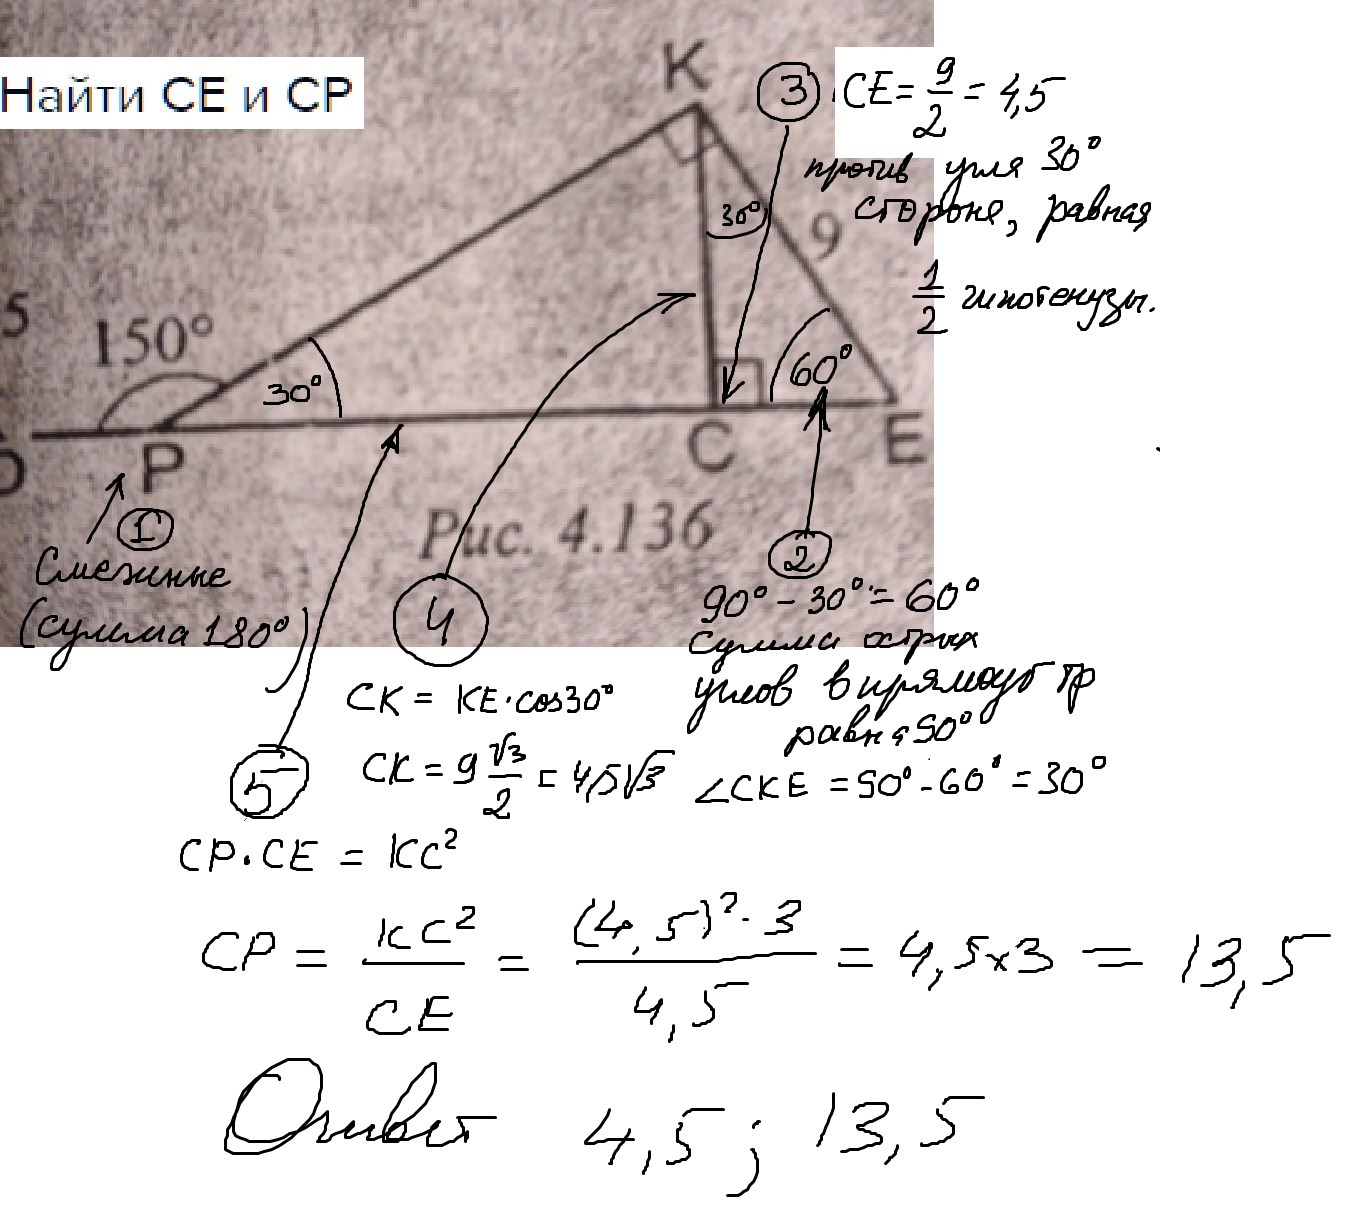 Найти CE и CP
K
3 . CE = 9/2 = 4,5
против угля 30°
стороне, равная
1/2 гипотенузы.
30°
9
5
150°
30°
60°
P
C
E
Рис. 4.136
1
Смежные
(сумма 180°)
2
90° - 30° = 60°
сумма острых
углов в прямоуг тр
равна 90°
∠CKE = 90° - 60° = 30°
4
CK = KE · cos30°
CK = 9 √3/2 = 4,5√3
5
CP · CE = KC²
CP = KC²/CE = (4,5)² · 3/4,5 = 4,5 x 3 = 13,5
Ответ 4,5 ; 13,5